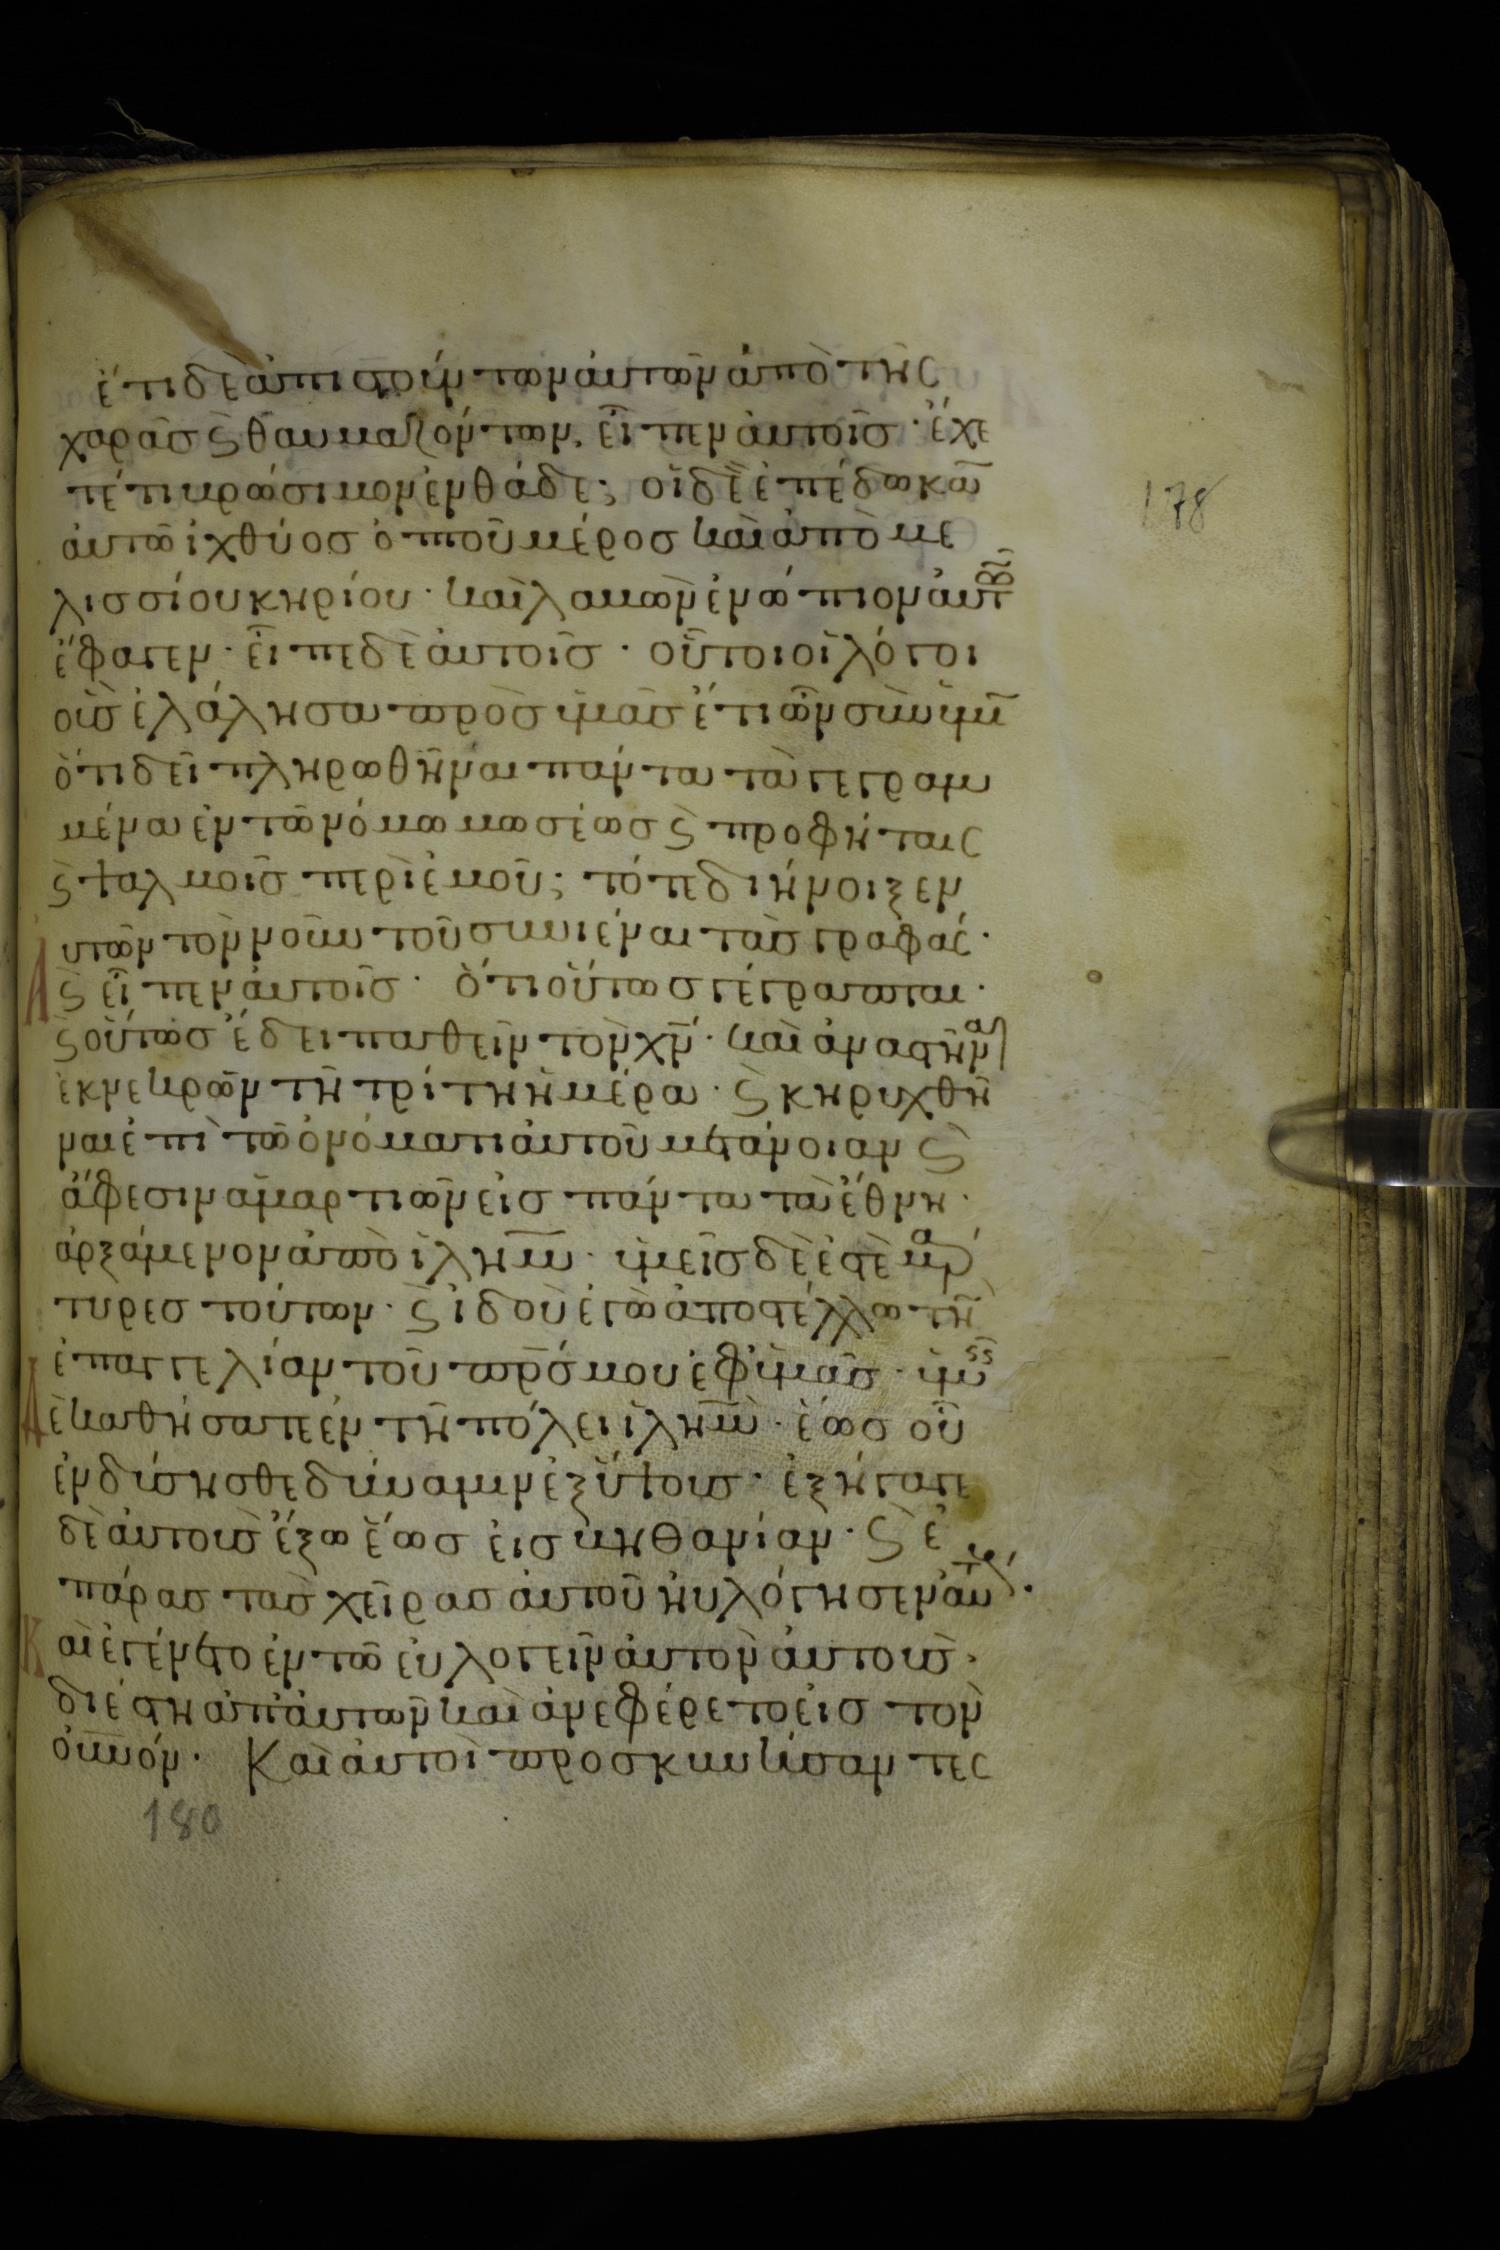 ἔτι δὲ ἀπιστούντων αὐτῶν ἀπὸ τῆς
χαρᾶς ϛ θαυμαζόντων, εἶπεν αὐτοῖς · ἔχε
τέ τι βρώσιμον ἐνθάδε; οἱ δὲ ἐπέδωκαν
αὐτῶ ἰχθύος ὀπτοῦ μέρος καὶ ἀπὸ με
λισσίου κηρίου · καὶ λαβὼν ἐνώπιον αὐτῶν
ἔφαγεν · εἶπε δὲ αὐτοῖς · οὗτοι οἱ λόγοι
οὓς ἐλάλησα πρὸς ὑμᾶς ἔτι ὢν σὺν ὑμῖν
ὅτι δεῖ πληρωθῆναι πάντα τὰ γεγραμ
μένα ἐν τῶ νόμω μωσέως ϛ προφήταις
ϛ ψαλμοῖς περὶ ἐμοῦ; τότε διήνοιξεν
αυτῶν τὸν νοῦν τοῦ συνιέναι τὰς γραφάς ·
ϛ εἶπεν αὐτοῖς · ὅτι οὕτως γέγραπται ·
ϛ οὕτως ἔδει παθεῖν τὸν χν · καὶ ἀναστῆναι
ἐκ νεκρῶν τῆ τρίτη ἡμέρα · ϛ κηρυχθῆ
ναι ἐπὶ τῶ ὀνόματι αὐτοῦ μετάνοιαν ϛ
ἄφεσιν ἁμαρτιῶν εἰς πάντα τὰ ἔθνη ·
ἀρξάμενον ἀπὸ ἱλημ · ὑμεῖς δέ ἐστε μάρ
τυρες τούτων · ϛ ἰδοὺ ἐγὼ ἀποστέλλω τὴν
ἐπαγγελίαν τοῦ πρς μου ἐφ ὑμᾶς · ὑμεῖς
δὲ καθήσατε ἐν τῆ πόλει ἱλημ · ἕως οὗ
ἐνδύσησθε δύναμιν ἐξ ὕψους · ἐξήγαγε
δὲ αὐτοὺς ἔξω ἕως εἰς βηθανίαν · ϛ ἐ
πάρας τὰς χεῖρας αὐτοῦ ηὐλόγησεν αὐτούς ·
Καὶ ἐγένετο ἐν τῶ εὐλογεῖν αὐτὸν αὐτοὺς ·
διέστη ἀπ αὐτῶν καὶ ἀνεφέρετο εἰς τὸν
οὐνόν · Καὶ αὐτοὶ προσκυνήσαντες
178
180